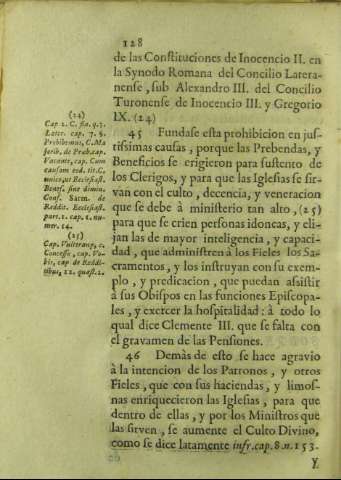 128
de las Constituciones de Inocencio II. en
la Synodo Romana del Concilio Latera-
nense, sub Alexandro III. del Concilio
Turonense de Inocencio III. y Gregorio
IX. (24)
45 Fundase esta prohibicion en jus-
tissimas causas, porque las Prebendas, y
Beneficios se erigieron para sustento de
los Clerigos, y para que las Iglesias se sir-
van con el culto, decencia, y veneracion
que se debe à ministerio tan alto, (25)
para que se crien personas idoneas, y eli-
jan las de mayor inteligencia, y capaci-
dad, que administren à los Fieles los Sa-
cramentos, y los instruyan con su exem-
plo, y predicacion, que puedan assistir
à sus Obispos en las funciones Episcopa-
les, y exercer la hospitalidad: à todo lo
qual dice Clemente III. que se falta con
el gravamen de las Pensiones.
46 Demàs de esto se hace agravio
à la intencion de los Patronos, y otros
Fieles, que con sus haciendas, y limos-
nas enriquecieron las Iglesias, para que
dentro de ellas, y por los Ministros que
las sirven, se aumente el Culto Divino,
como se dice latamente infr. cap. 8. n. 153.
Y
(24)
Cap 1. C. fin. q. 3.
Later. cap. 7. §.
Prohibemus, C. Ma
jorib. de Præb. cap.
Vacante, cap. Cum
causam eod. tit. C.
unico, ut Ecclesiast.
Benef. sine dimin.
Conf. Sarm. de
Reddit. Ecclesiast.
part. 1. cap. 1. nu-
mer. 14.
(25)
Cap. Vulteranę, c.
Concesso, cap. Vo-
bis, cap de Reddi-
tibus, 12. quæst. 2.